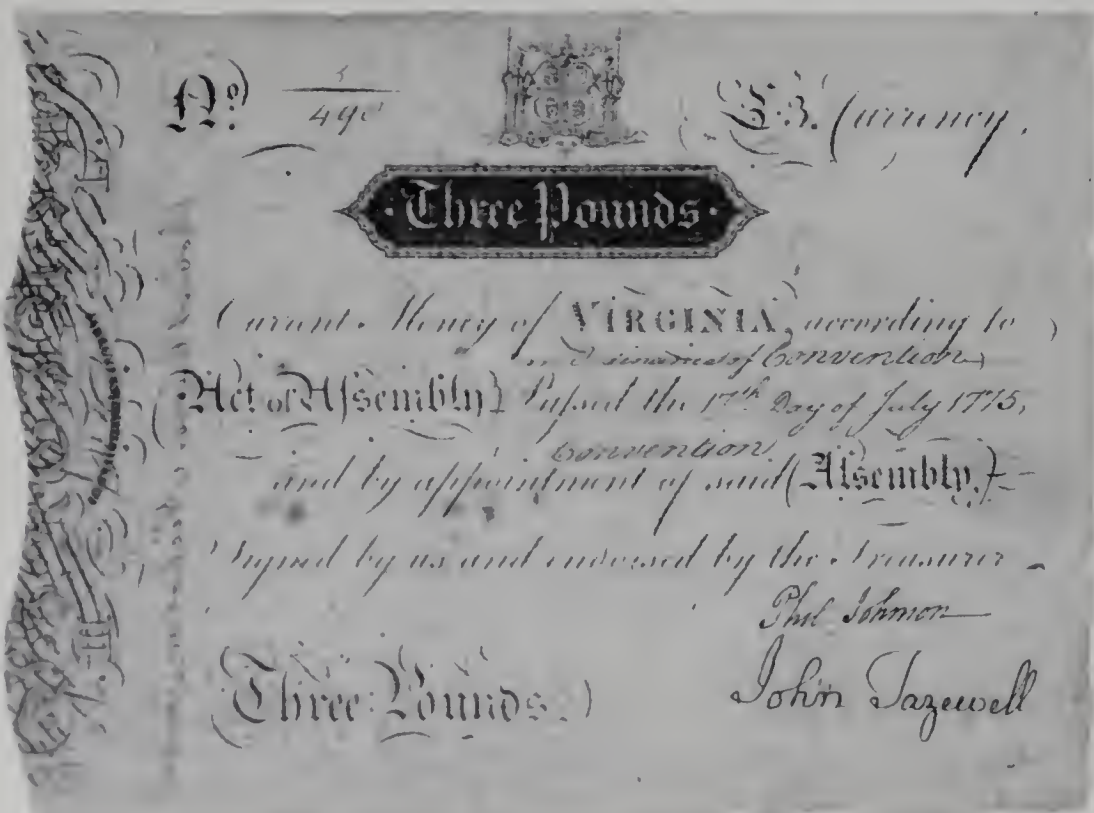 No. 490
£3. Currency.
·Three Pounds·
Current Money of VIRGINIA, according to
of Convention
(Act of Assembly) Passed the 17th Day of July 1775,
Convention
and by appointment of said (Assembly.)
Signed by us and endorsed by the Treasurer
Phil Johnson
(Three Pounds.)
John Tazewell